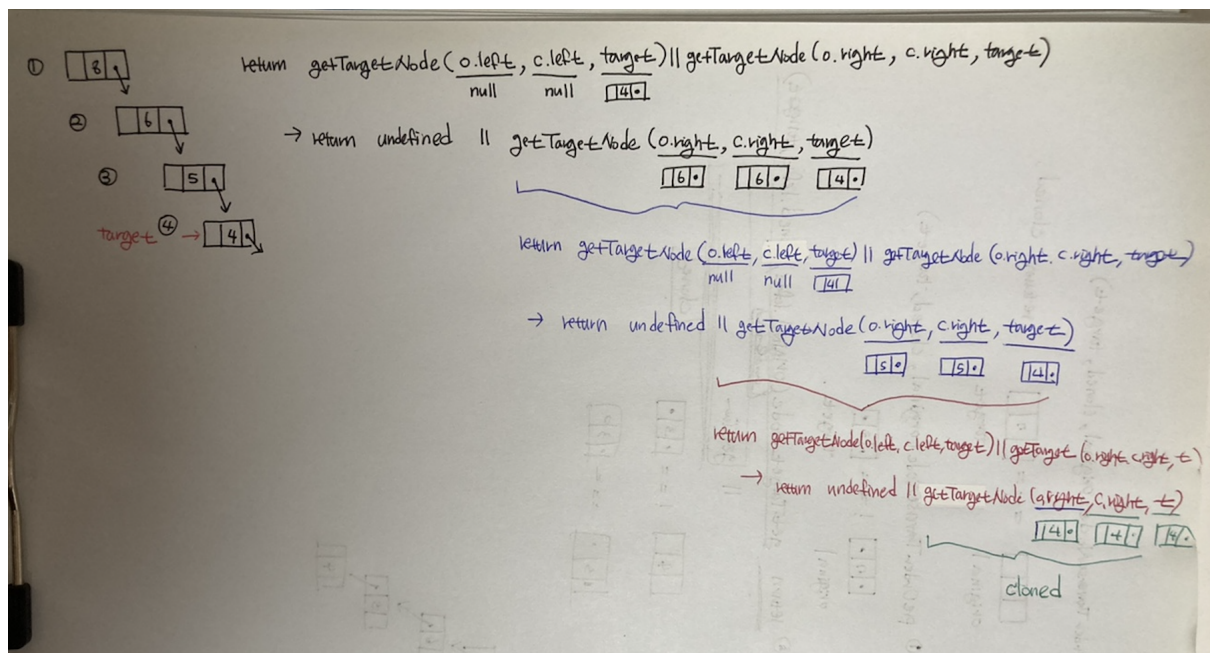 ① 8 return getTargetNode(o.left, c.left, target) || getTargetNode(o.right, c.right, target)
null null 4
② 6 → return undefined || getTargetNode(o.right, c.right, target)
③ 5 6 6 4
target ④ → 4
return getTargetNode(o.left, c.left, target) || getTargetNode(o.right. c.right, target)
null null 4
→ return undefined || getTargetNode(o.right, c.right, target)
5 5 4
return getTargetNode(o.left, c.left, target) || getTarget (o.right, c.right, t)
→ return undefined || getTargetNode (o.right, c.right, t)
4 4 4
cloned